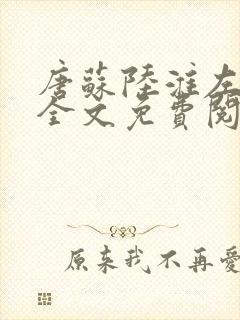 唐蘇陸淮左
全文免費閱
原来我不再愛